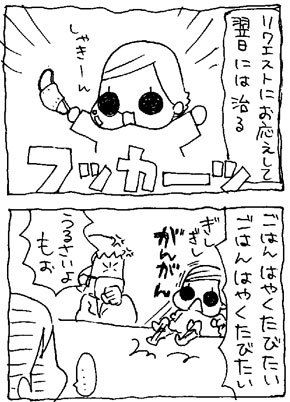 リクエストにお応えして
翌日には治る
しゃきーん
フッカーツ
ごはんはやくたびたい
ごはんはやくたびたい
ぎし
ぎし
がんがん
うるさいよ
もお
…